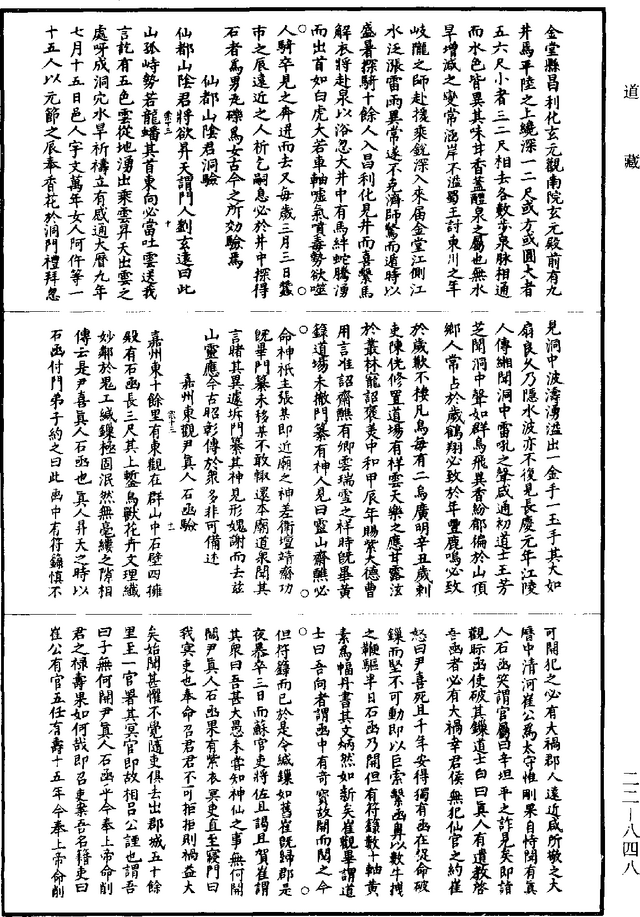 道藏
金堂縣昌利化玄元觀南院玄元殿前有九
井焉平陸之上纔深一二尺或方或圓大者
五六尺小者三二尺相去各數步泉脉相通
而水色皆異其味甘香蓋醴泉之屬也無水
旱增減之變常涵岸不溢蜀王討東川之年
岐隴之師赴援乘銳深入來届金堂江側江
水泛漲雷雨異常遂不克濟師驚而遁時以
盛暑探騎十餘人入昌利化見井而喜繫馬
解衣將赴泉以浴忽大井中有馬絆蛇騰湧
而出首如白虎大若車軸噓氣噴毒勢欲噬
人騎卒見之奔迸而去又每歲三月三日蠶
市之辰遠近之人祈乞嗣息必於井中探得
石者為男瓦礫為女古今之所効驗焉
仙都山陰君洞驗
仙都山陰君將欲昇天謂門人劉玄遠曰此
山孤峙勢若龍蟠其首東向必當吐雲送我
言訖有五色雲從地湧出乘雲昇天出雲之
處呀成洞穴水旱祈禱立有感通大曆九年
七月十五日邑人宇文萬年女人阿仵等一
十五人以元節之辰奉香花於洞門禮拜忽
見洞中波濤湧溢出一金手一玉手其大如
扇良久乃隱水波亦不復見長慶元年江陵
人傳緗聞洞中雷吼之聲咸通初道士王芳
芝聞洞中聲如群鳥飛異香紛郁徧於山頂
鄉人常占於歲鶴翔必致於年豐鹿鳴必致
於歲歉不棲凡鳥每有二烏廣明辛丑歲刺
吏陳侁修置道場有祥雲天樂之應甘露汝
於叢林寵詔褒美中和甲辰年賜紫大德曹
用言准詔齋醮有卿雲瑞雪之祥時既畢黃
籙道場未撤門纂有神人見曰靈山齋醮必
命神祇主張某即近廟之神差衛壇靖齋功
既畢門纂未移某不敢輙還本廟道衆聞其
言睹其異遽拆門纂其神見形媿謝而去兹
山靈應今古昭彰傳於衆多非可備述
嘉州東觀尹真人石函驗
嘉州東十餘里有東觀在群山中石壁四擁
殿有石函長三尺其上鏨鳥獸花卉文理纖
妙鄰於鬼工緘鏁極固泯然無毫縷之隙相
傳云是尹喜真人石函也真人昇天之時以
石函付門弟子約之曰此函中有符籙慎不
可開犯之必有大禍郡人遠近咸所敬之大
曆中清河崔公為太守惟剛果自恃聞有真
人石函笑謂官屬曰辛垣平之詐見矣即詣
觀眎函使破其鏁道士白曰真人有遺教啓
吾函者必有大禍幸君侯無犯仙官之約崔
怒曰尹喜死且千年安得獨有函在促命破
鏁而堅不可動即以巨索繫函鼻以數牛拽
之鞭驅半日石函乃開但有符籙數十軸黃
素為幅丹書其文炳然如新矣崔觀畢謂道
士曰吾向者謂函中有奇寳故開而閱之今
但符籙而已於是令緘鏁如舊崔既歸郡是
夜暴卒三日而蘇官吏將佐且謁且賀崔謂
其衆曰吾甚大愚未嘗知神仙之事無何開
關尹真人石函果有紫衣冥吏直至寢門曰
我冥吏也奉命召君君不可拒拒則禍益大
矣始聞甚懼不覺隨吏俱去出郡城五十餘
里至一官署其冥官即故相呂公諲也謂吾
曰子無何開尹真人石函乎今奉上帝命削
君之祿壽果如何哉即召吏案吾名籍吏曰
崔公有官五任有壽十五年今奉上帝命削
二二—八四八